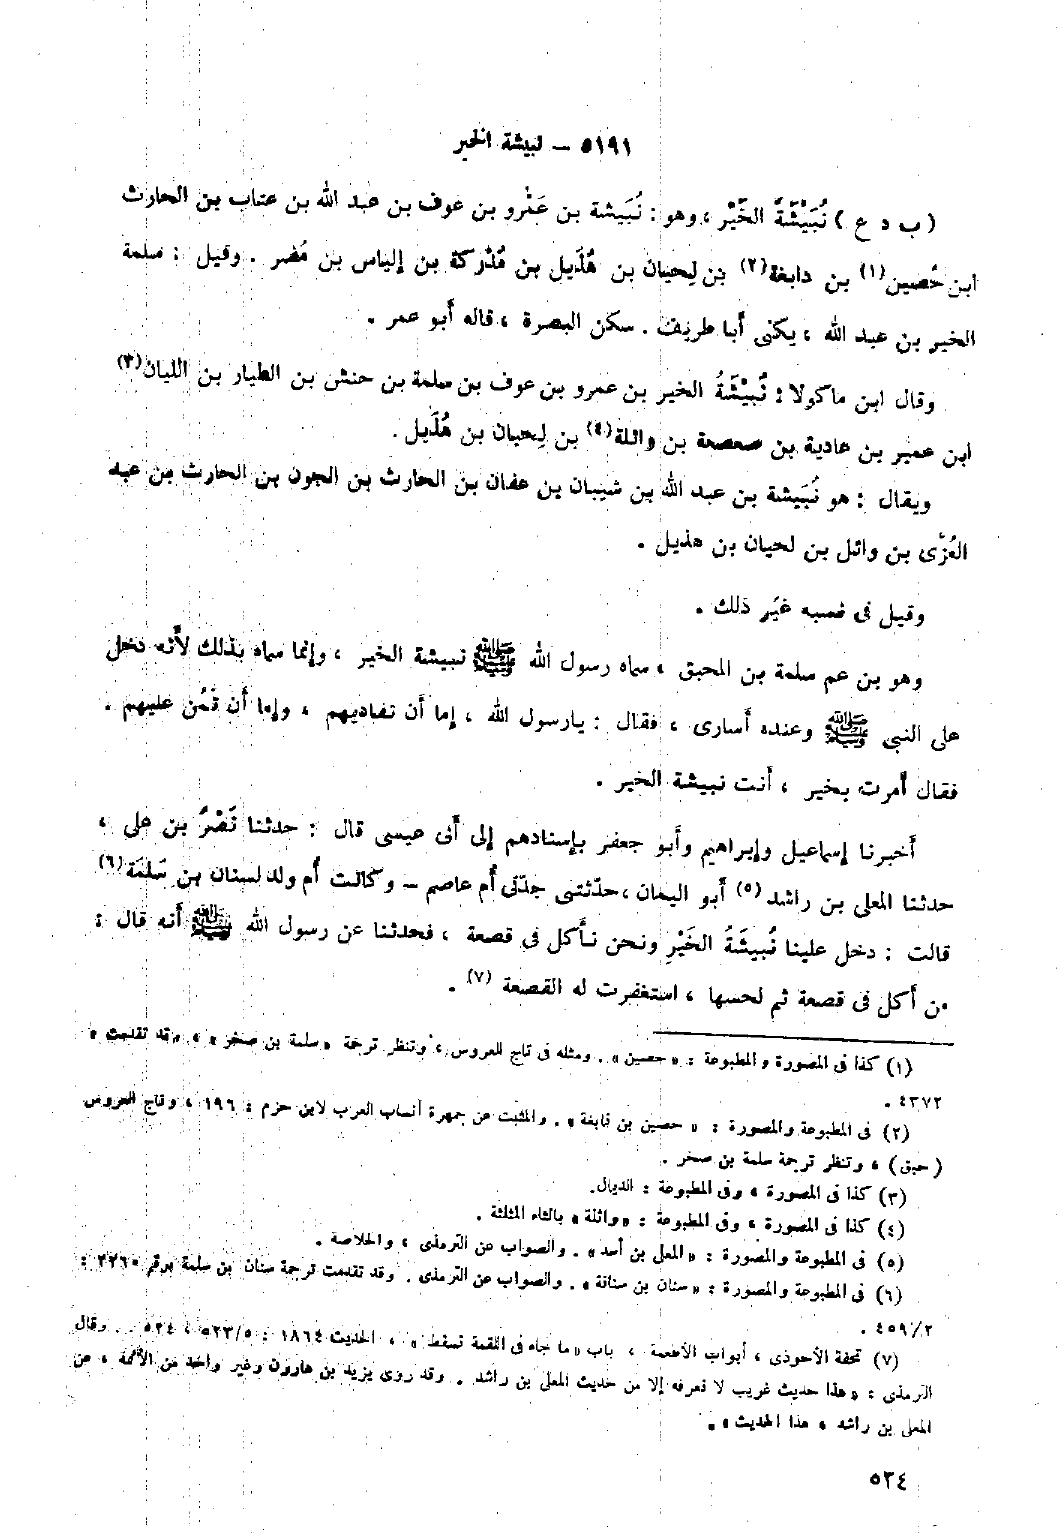 ٥١٩١ – نبيشة الخير
( ب د ع ) نُبَيْشَةُ الخَيْر ، وهو : نُبَيشة بن عَمْرو بن عوف بن عبد الله بن عتاب بن الحارث
ابن حُصين(١) بن دابغة(٢) بن لِحيان بن هُذَيل بن مُدْركة بن إلياس بن مُضر . وقيل : سلمة
الخير بن عبد الله ، يكنى أبا طريف . سكن البصرة ، قاله أبو عمر .
وقال ابن ماكولا : نُبَيْشَةُ الخير بن عمرو بن عوف بن سلمة بن حنش بن الطيار بن الليان(٣)
ابن عمير بن عادية بن صعصعة بن وائلة(٤) بن لِحيان بن هُذَيل .
ويقال : هو نُبَيشة بن عبد الله بن شيبان بن عفان بن الحارث بن الجون بن الحارث بن عبد
العُزَّى بن وائل بن لحيان بن هذيل .
وقيل فى نسبه غَيْر ذلك .
وهو بن عم سلمة بن المحبق ، سماه رسول الله ﷺ نبيشة الخير ، وإنما سماه بذلك لأنه دخل
على النبى ﷺ وعنده أسارى ، فقال : يارسول الله ، إما أن تفاديهم ، وإما أن تَمُن عليهم .
فقال أمرت بخير ، أنت نبيشة الخير .
أخبرنا إسماعيل وإبراهيم وأبو جعفر بإسنادهم إلى أبى عيسى قال : حدثنا نَصْرُ بن على ،
حدثنا المعلى بن راشد (٥) أبو اليمان ، حدّثتنى جدّتى أُم عاصم – وكانت أُم ولد لسنان بن سَلَمَة(٦)
قالت : دخل علينا نُبيشَةُ الخَيْرِ ونحن نأكل فى قصعة ، فحدثنا عن رسول الله ﷺ أنه قال :
من أكل فى قصعة ثم لحسها ، استغفرت له القصعة (٧) .
(١) كذا فى المصورة والمطبوعة : « حصين » . ومثله فى تاج العروس ، وتنظر ترجمة « سلمة بن صخر » ، وقد تقدمت ،
٤٣٧٢ .
(٢) فى المطبوعة والمصورة : « حصين بن نابغة » . والمثبت عن جمهرة أنساب العرب لابن حزم : ١٩٦ ، وتاج العروس
( حبق ) ، وتنظر ترجمة سلمة بن صخر .
(٣) كذا فى المصورة ، وفى المطبوعة : الديال .
(٤) كذا فى المصورة ، وفى المطبوعة : « واثلة » بالثاء المثلثة .
(٥) فى المطبوعة والمصورة : « المعلى بن أسد » . والصواب عن الترمذى ، والخلاصة .
(٦) فى المطبوعة والمصورة : « سنان بن سنانة » . والصواب عن الترمذى . وقد تقدمت ترجمة سنان بن سلمة برقم ٢٢٦٥ :
٤٥٩/٢ .
(٧) تحفة الأحوذى ، أبواب الأطعمة ، باب « ما جاء فى اللقمة تسقط » ، الحديث ١٨٦٤ : ٥٢٣/٥ ، ٥٢٤ . وقال
الترمذى : « هذا حديث غريب لا نعرفه إلا من حديث المعلى بن راشد . وقد روى يزيد بن هارون وغير واحد من الأئمة ، عن
المعلى بن راشد ، هذا الحديث » .
٥٣٤